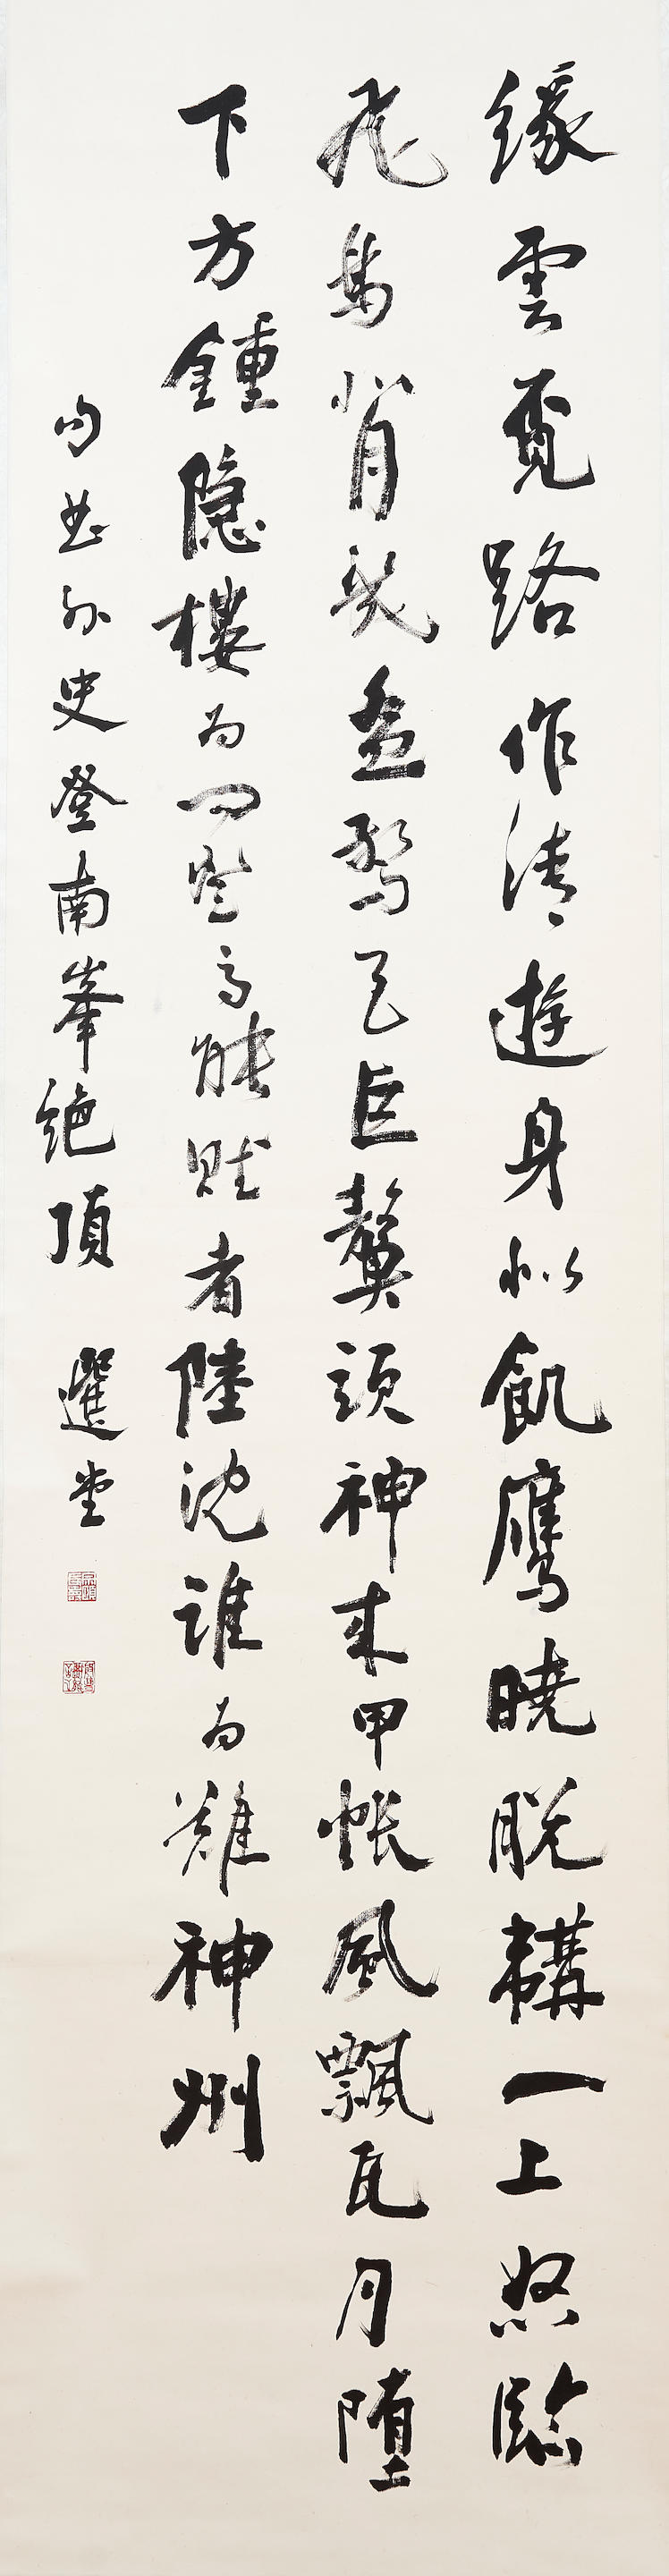 緣雲覓路作清遊身似飢鷹曉脫韝一上怒臨
飛鳥背巨鼇頭神來甲帳風飄瓦月墮
下方鍾隱樓為問登高能賦者陸沈誰為難神州
句曲外史登南峯絕頂 選堂